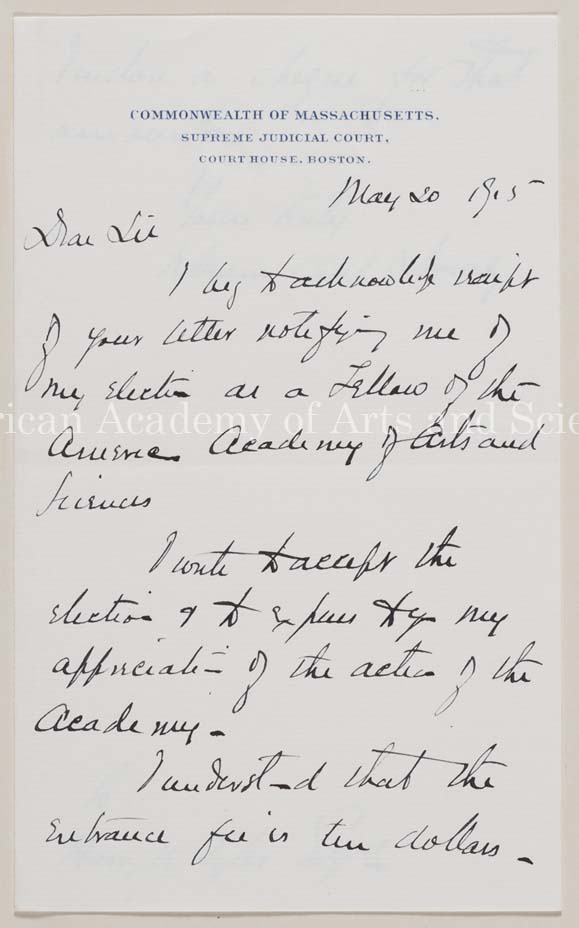 COMMONWEALTH OF MASSACHUSETTS.
SUPREME JUDICIAL COURT,
COURT HOUSE, BOSTON.
May 20 1915
Dear Sir
I beg to acknowledge receipt
of your letter notifying me of
my election as a Fellow of the
American Academy of Arts and
Sciences
I write to accept the
election & to express to you my
appreciation of the action of the
Academy.
I understand that the
entrance fee is ten dollars.
rican Academy of Arts and Scie